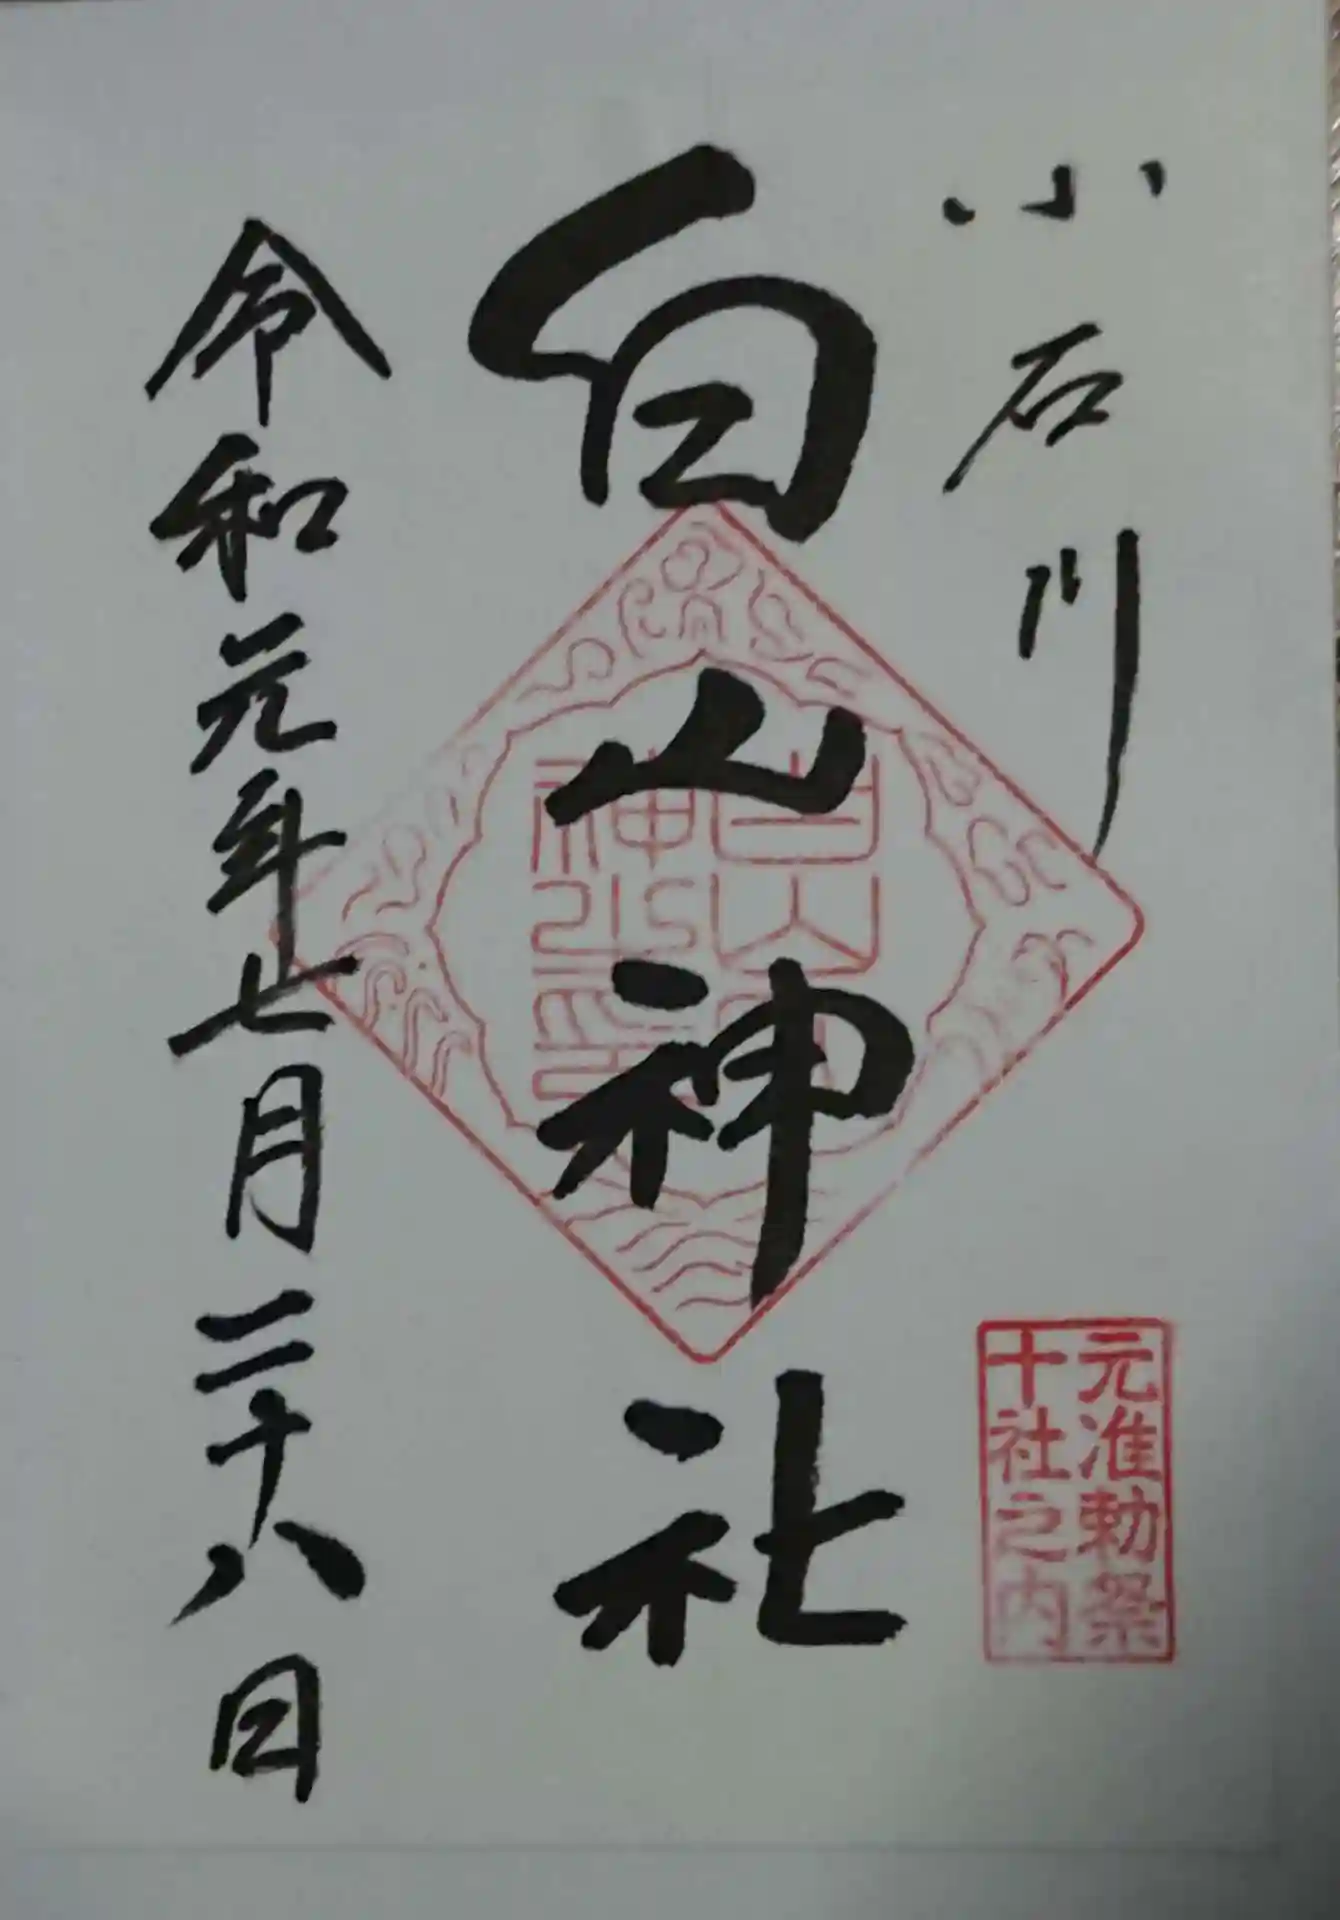 小石川
白山神社
令和元年七月二十八日
元准勅祭
十社之内
白山
神社